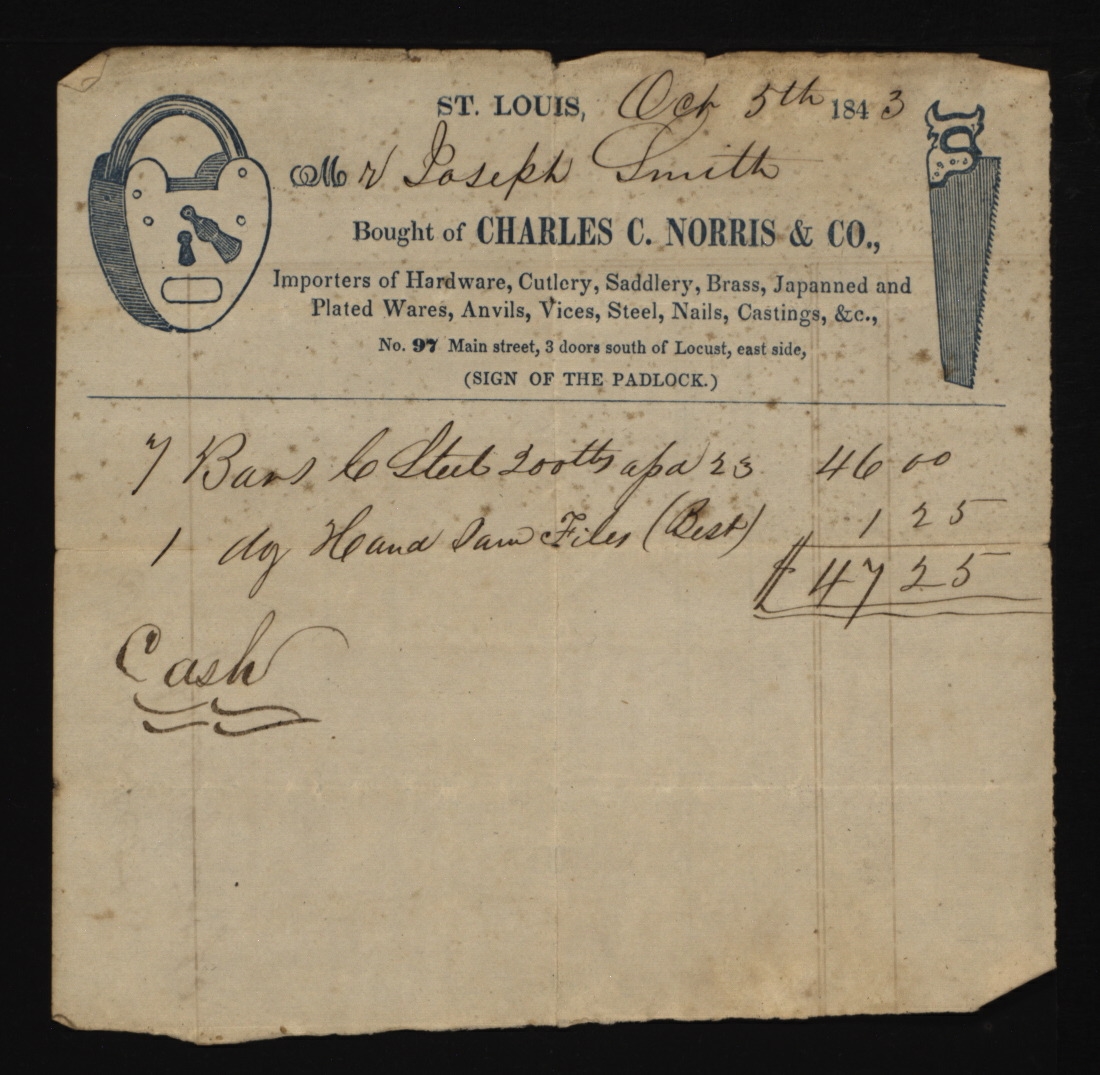 ST. LOUIS, Oct 5th 1843
Mr Joseph Smith
Bought of CHARLES C. NORRIS & CO.,
Importers of Hardware, Cutlery, Saddlery, Brass, Japanned and
Plated Wares, Anvils, Vices, Steel, Nails, Castings, &c.,
No. 97 Main street, 3 doors south of Locust, east side,
(SIGN OF THE PADLOCK.)
7 Bars C Steel 200 lbs 23 46 00
1 dz Hand Saw Files (Best) 1 25
$ 47 25
Cash